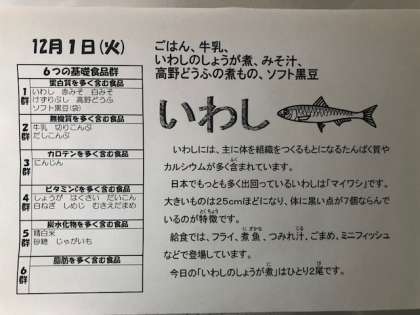 12月1日(火)
ごはん、牛乳、
いわしのしょうが煮、みそ汁、
高野どうふの煮もの、ソフト黒豆
6つの基礎食品群
1群
蛋白質を多く含む食品
いわし 赤みそ 白みそ
けずりぶし 高野どうふ
ソフト黒豆(袋)
2群
無機質を多く含む食品
牛乳 切りこんぶ
だしこんぶ
3群
カロテンを多く含む食品
にんじん
4群
ビタミンCを多く含む食品
しょうが はくさい だいこん
白ねぎ しめじ むきえだまめ
5群
炭水化物を多く含む食品
精白米
砂糖 じゃがいも
6群
脂肪を多く含む食品
いわし
いわしには、主に体を組織をつくるもとになるたんぱく質や
カルシウムが多く含まれています。
日本でもっとも多く出回っているいわしは「マイワシ」です。
大きいものは25cmほどになり、体に黒い点が7個ならんで
いるのが特徴です。
給食では、フライ、煮魚、つみれ汁、ごまめ、ミニフィッシュ
などで登場しています。
今日の「いわしのしょうが煮」はひとり2尾です。